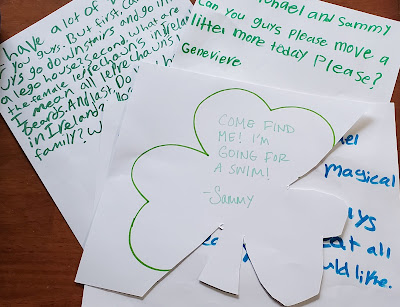 I have a lot of
you guys. But first can
guys go downstairs and go in
a lego house? Second, what are
the female leprechauns in Ireland
I mean all leprechauns
Beards. And last. Do
in Ireland?
family? W
Michael and Sammy
Can you guys please move a
litter more today Please?
Genevieve
COME FIND
ME! I'M
GOING FOR
A SWIM!
-Sammy
magical
eat all
would like.